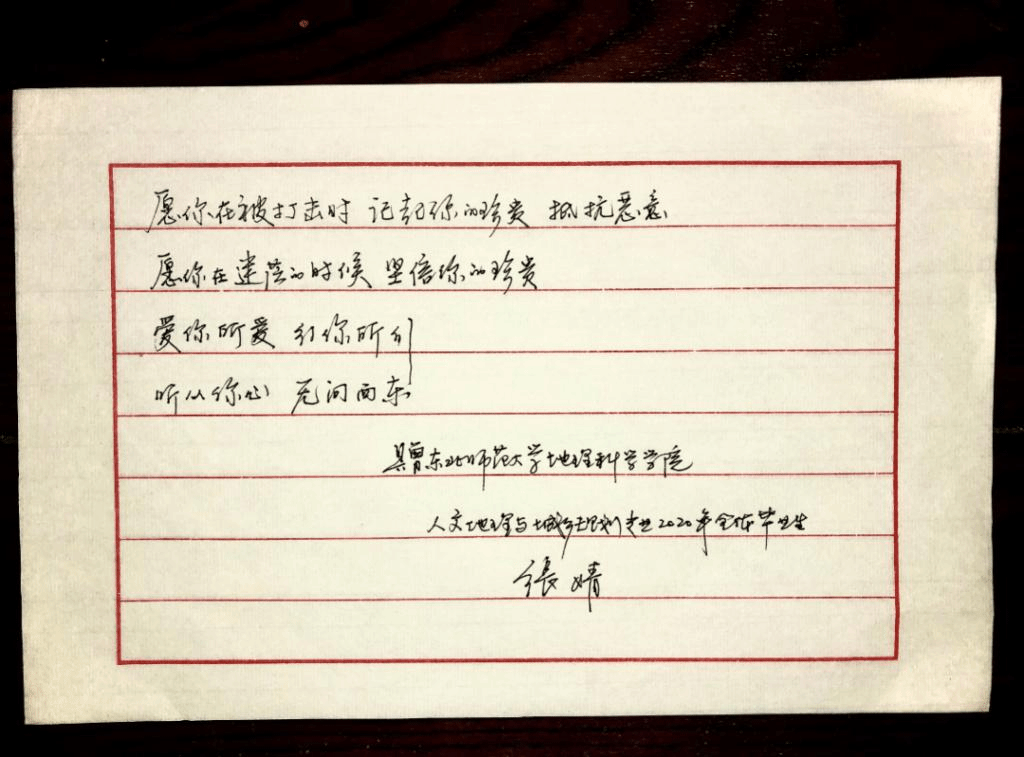 愿你在被打击时 记起你的珍贵 抵抗恶意
愿你在迷茫的时候 坚信你的珍贵
爱你所爱 行你所行
听从你心 无问西东
赠东北师范大学地理科学学院
人文地理与城乡规划专业2020年全体毕业生
張婧